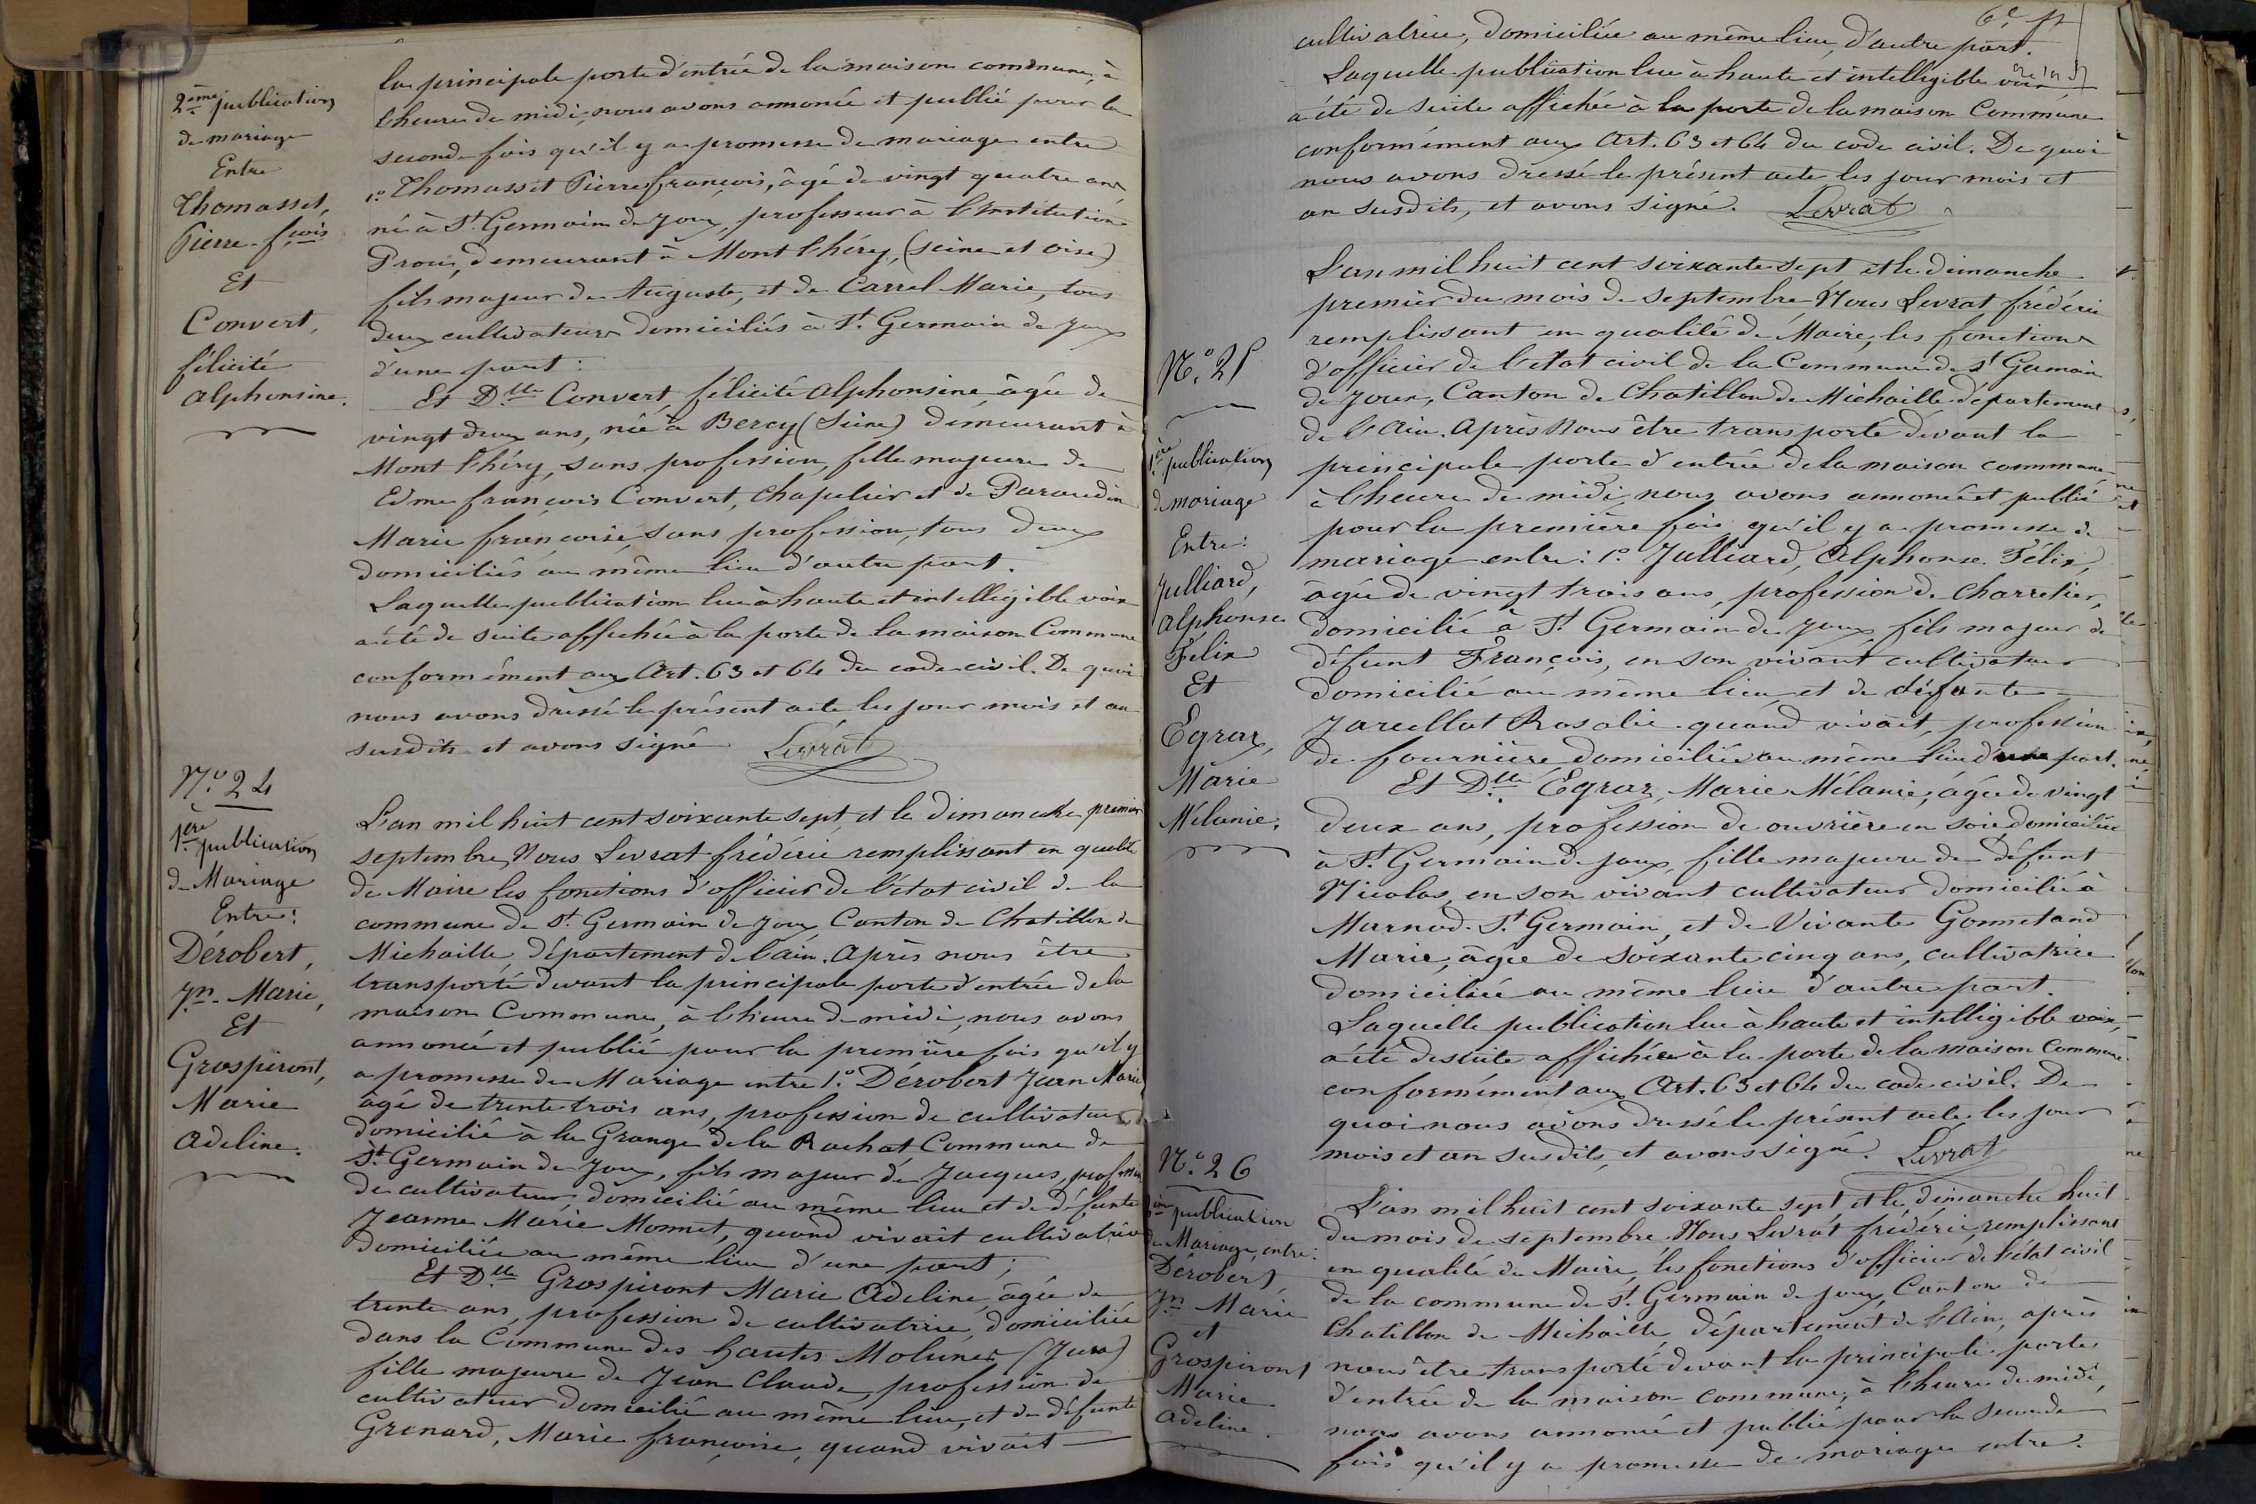 2ème publication
de mariage
Entre
Thomasset,
Pierre-fçois
Et
Convert,
félicité
alphonsine.
la principale porte d'entrée de la maison commune, à
l'heure de midi, nous avons annoncé et publié pour la
seconde fois qu'il y a promesse de mariage entre
1o Thomasset Pierre françois, âgé de vingt quatre ans,
né à St Germain de Joux, professeur à l'Institution
Prout, demeurant à Mont l'héry, (seine et oise)
fils majeur de Auguste, et de Carrel Marie, tous
deux cultivateurs domiciliés à St. Germain de Joux
d'une part:
Et Dlle Convert félicité alphonsine, âgée de
vingt deux ans, née à Bercy (Seine) demeurant à
Mont l'héry, sans profession, fille majeure de
Edme françois Convert, Chapelier et de Paraudin
Marie françoise, sans profession, tous deux
domiciliés au même lieu d'autre part.
Laquelle publication lue à haute et intelligible voix
a été de suite affichée à la porte de la maison Commune
conformément aux Art. 63 et 64 du code civil. De quoi
nous avons dressé le présent acte les jour mois et an
susdits et avons signé Levrat
No. 24
1ère publication
de Mariage
Entre:
Dérobert,
Jn. Marie,
Et
Grospiront,
Marie
Adeline.
L'an mil huit cent soixante sept, et le dimanche premier
septembre, Nous Levrat frédéric remplissant en qualité
de Maire les fonctions d'officier de l'état civil de la
commune de St. Germain de Joux, Canton de Chatillon de
Michaille, département de l'ain. Après nous être
transporté devant la principale porte d'entrée de la
maison Commune, à l'heure de midi, nous avons
annoncé et publié pour la première fois qu'il y
a promesse de Mariage entre 1o. Dérobert Jean Marie
âgé de trente trois ans, profession de cultivateur
domicilié à la Grange de la Rachat Commune de
St. Germain de Joux, fils majeur de Jacques, profession
de cultivateur, domicilié au même lieu et de défunte
Jeanne Marie Monnet, quand vivait cultivatrice
domiciliée au même lieu d'une part;
Et Dlle Grospiront Marie Adeline, âgée de
trente ans, profession de cultivatrice, domiciliée
dans la Commune des hautes Molunes (Jura)
fille majeure de Jean Claude, profession de
cultivateur domicilié au même lieu, et de défunte
Grenard, Marie françoise, quand vivait
6e ft
cultivatrice, domiciliée au même lieu, d'autre part.
Laquelle publication lue à haute et intelligible voix
a été de suite affichée à la porte de la maison Commune
conformément aux Art. 63 et 64 du code civil. De quoi
nous avons dressé le présent acte les jour mois et
an susdits, et avons signé. Levrat
No. 25
1ère publication
de mariage
Entre:
Julliard,
Alphonse
Félix
Et
Egraz,
Marie
Mélanie.
L'an mil huit cent soixante sept et le dimanche
premier du mois de septembre Nous Levrat frédéric
remplissant en qualité de Maire, les fonctions
d'officier de l'état civil de la Commune de St Germain
de Joux, Canton de Chatillon de Michaille département
de l'Ain. Après Nous être transporté devant la
principale porte d'entrée de la maison commune,
à l'heure de midi, nous avons annoncé et publié
pour la première fois qu'il y a promesse de
mariage entre: 1o. Julliard, Alphonse Félix,
âgé de vingt trois ans, profession de Charretier,
domicilié à St Germain de Joux fils majeur de
défunt François, en son vivant cultivateur
domicilié au même lieu, et de défunte
Jarcellat Rosalie quand vivait, profession
de fournière domiciliée au même lieu d'une part.
Et Dlle Egraz, Marie Mélanie, âgée de vingt
deux ans, profession de ouvrière en soie, domiciliée
à St Germain de Joux, fille majeure de défunt
Nicolas, en son vivant cultivateur domicilié à
Marnod St Germain, et de Vivante Gonnetand
Marie, âgée de soixante cinq ans, cultivatrice
domiciliée au même lieu d'autre part.
Laquelle publication lue à haute et intelligible voix,
a été de suite affichée à la porte de la maison Commune
conformément aux Art. 63 et 64 du code civil. De
quoi nous avons dressé le présent acte les jour
mois et an susdits, et avons signé. Levrat
No. 26
publication
de Mariage entre:
Dérobert
Jn Marie
et
Grospiront
Marie
Adeline.
L'an mil huit cent soixante sept, et le dimanche huit
du mois de septembre. Nous Levrat frédéric, remplissant
en qualité de Maire, les fonctions d'officier de l'état civil
de la commune de St. Germain de Joux, Canton de
Chatillon de Michaille, département de l'Ain, après
nous être transporté devant la principale porte
d'entrée de la maison commune, à l'heure de midi,
nous avons annoncé et publié pour la seconde
fois qu'il y a promesse de mariage entre.